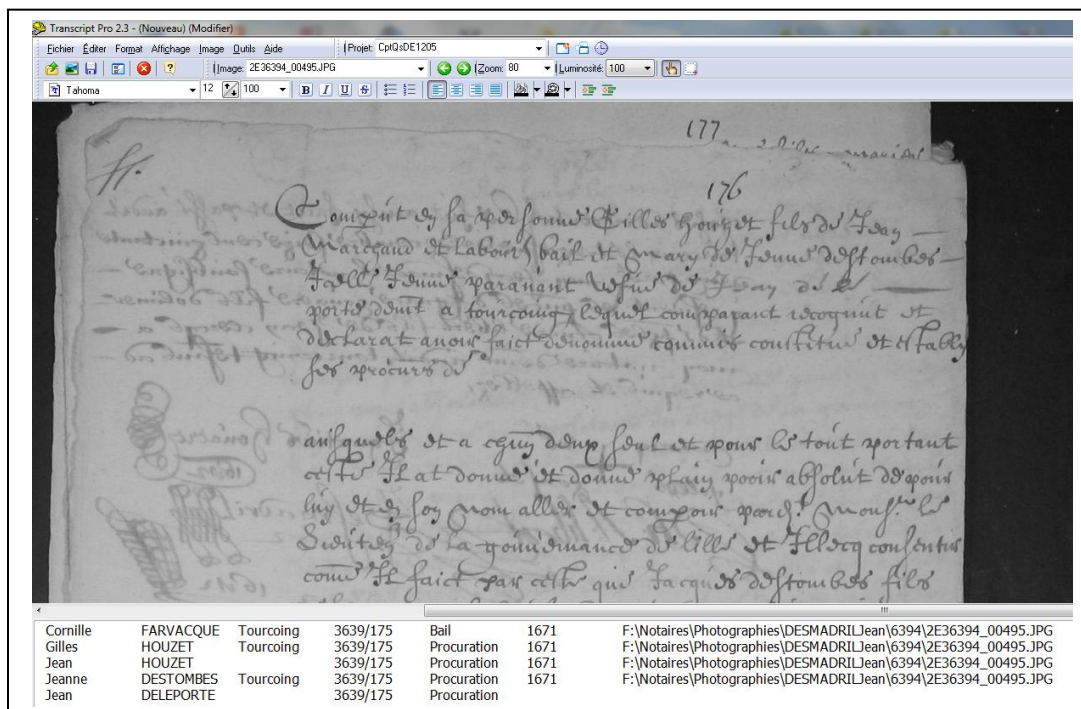 Transcript Pro 2.3 - (Nouveau) (Modifier)
Fichier Éditer Format Affichage Image Outils Aide Projet: CptQsDE1205
Image: 2E36394_00495.JPG Zoom: 80 Luminosité: 100
Tahoma 12 100 B I U S
177
176
Comparut en sa personne Gilles houzet fils de Jean
Marchand et Labour bail et mary de Jenne destombes
Icelle Jenne paravant vefue de Jean de le
porte demt a tourcoing, lequel comparant recognut et
declarat auoir faict denomme commis constitue et estably
ses procurs de
ausquels et a chun deux seul et pour le tout portant
ceste Il at donne et donne plain pooir absolut de pour
luy et en son nom aller et compoir pardt Monsr le
Lieuten de la gouuernance de lille et Illecq consentir
come Il faict par ceste que Jacques destombes fils
Cornille FARVACQUE Tourcoing 3639/175 Bail 1671 F:\Notaires\Photographies\DESMADRILJean\6394\2E36394_00495.JPG
Gilles HOUZET Tourcoing 3639/175 Procuration 1671 F:\Notaires\Photographies\DESMADRILJean\6394\2E36394_00495.JPG
Jean HOUZET 3639/175 Procuration 1671 F:\Notaires\Photographies\DESMADRILJean\6394\2E36394_00495.JPG
Jeanne DESTOMBES Tourcoing 3639/175 Procuration 1671 F:\Notaires\Photographies\DESMADRILJean\6394\2E36394_00495.JPG
Jean DELEPORTE 3639/175 Procuration